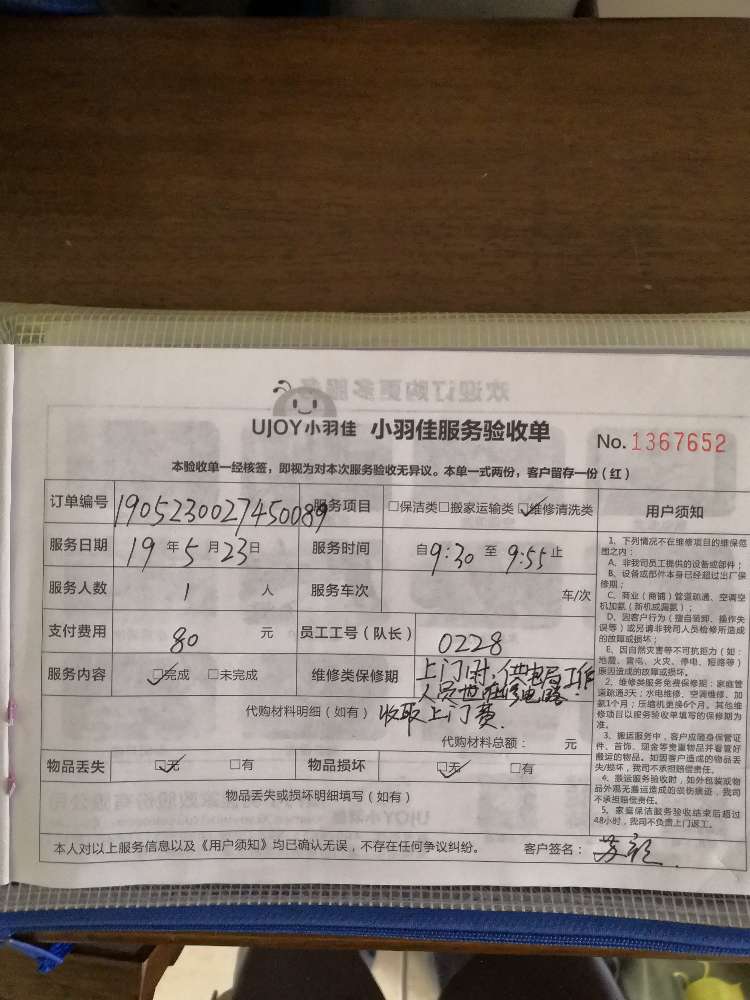 UJOY小羽佳 小羽佳服务验收单
No. 1367652
本验收单一经核签，即视为对本次服务验收无异议。本单一式两份，客户留存一份（红）
订单编号 1905230027450089 服务项目 □保洁类□搬家运输类☑维修清洗类
服务日期 19 年 5 月 23 日 服务时间 自 9:30 至 9:55 止
服务人数 1 人 服务车次 车/次
支付费用 80 元 员工工号（队长） 0228
服务内容 ☑完成 □未完成 维修类保修期 上门时，供电局工作
人员 电路
代购材料明细（如有） 收取上门费
代购材料总额： 元
物品丢失 ☑无 □有 物品损坏 ☑无 □有
物品丢失或损坏明细填写（如有）
本人对以上服务信息以及《用户须知》均已确认无误，不存在任何争议纠纷。 客户签名：
用户须知
1、下列情况不在维修项目的维保范
围之内：
A、非我司员工提供的设备或部件；
B、设备或部件本身已经超过出厂保
修期；
C、商业（商铺）管道疏通、空调空
机加氨（新机或漏氨）；
D、因客户行为（擅自装卸、操作失
误等）或另请非我司人员检修所造成
的故障或损坏；
E、因自然灾害等不可抗拒力（如：
地震、雷电、火灾、停电、短路等）
原因造成的故障或损坏。
2、维修类服务免费保修期：家庭管
道疏通3天；水电维修、空调维修、加
氨1个月；压缩机更换6个月。其他维
修项目以服务验收单填写的保修期为
准。
3、搬运服务中，客户应随身保管证
件、首饰、现金等贵重物品并看管好
搬运的物品。如因客户造成的物品丢
失/损坏，我司不承担赔偿责任。
4、搬运服务验收时，如外包装或物
品外观无搬运造成的损伤痕迹，我司
不承担赔偿责任。
5、家庭保洁服务验收结束后超过
48小时，我司不负责上门返工。